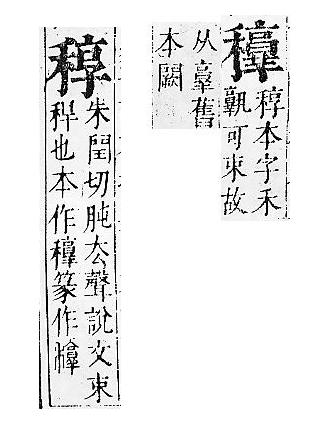 稕本字禾
可束故
从𦎫舊
本闕
稕
朱閏切肫厺聲說文束
稈也本作篆作